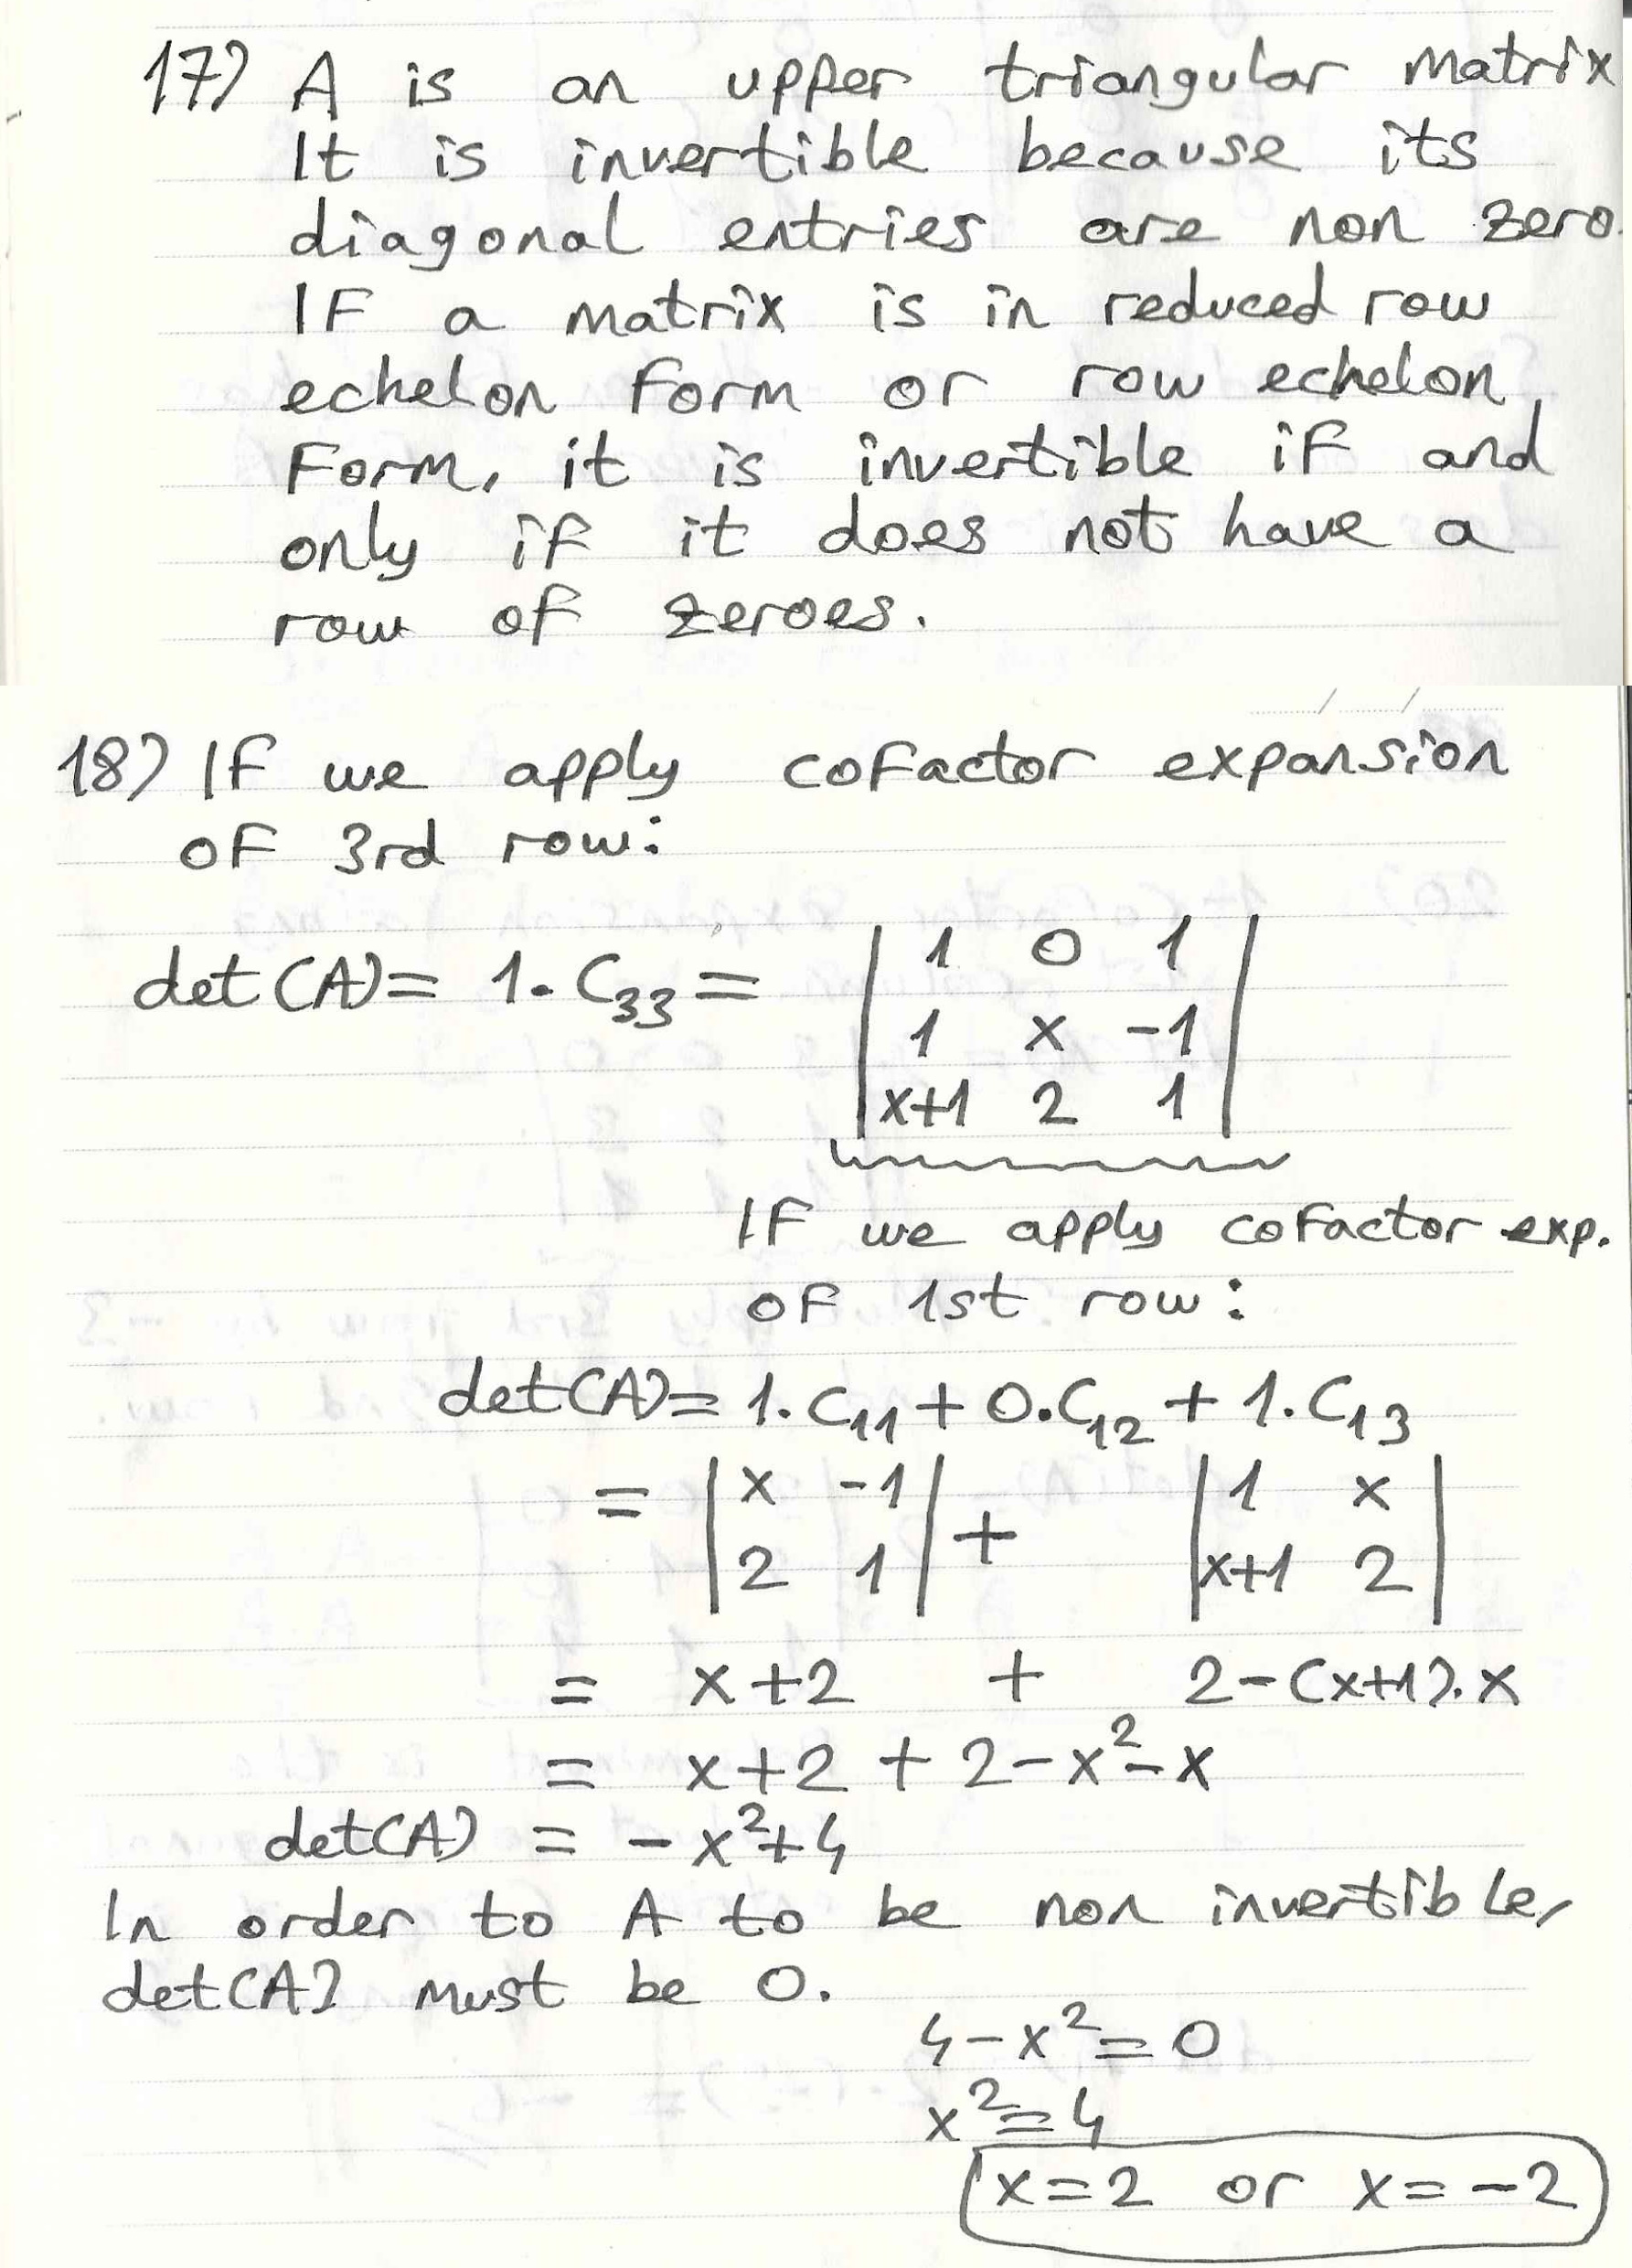 17) A is an upper triangular matrix
It is invertible because its
diagonal entries are non zero.
If a matrix is in reduced row
echelon form or row echelon
form, it is invertible if and
only if it does not have a
row of zeroes.
18) If we apply cofactor expansion
of 3rd row:
det(A) = 1. C₃₃ = | 1 0 1 |
| 1 x -1 |
| x+1 2 1 |
If we apply cofactor exp.
of 1st row:
det(A) = 1. C₁₁ + 0. C₁₂ + 1. C₁₃
= | x -1 | + | 1 x |
| 2 1 | | x+1 2 |
= x+2 + 2-(x+1).x
= x+2 + 2-x²-x
det(A) = -x²+4
In order to A to be non invertible,
det(A) must be 0.
4-x²=0
x²=4
x=2 or x=-2